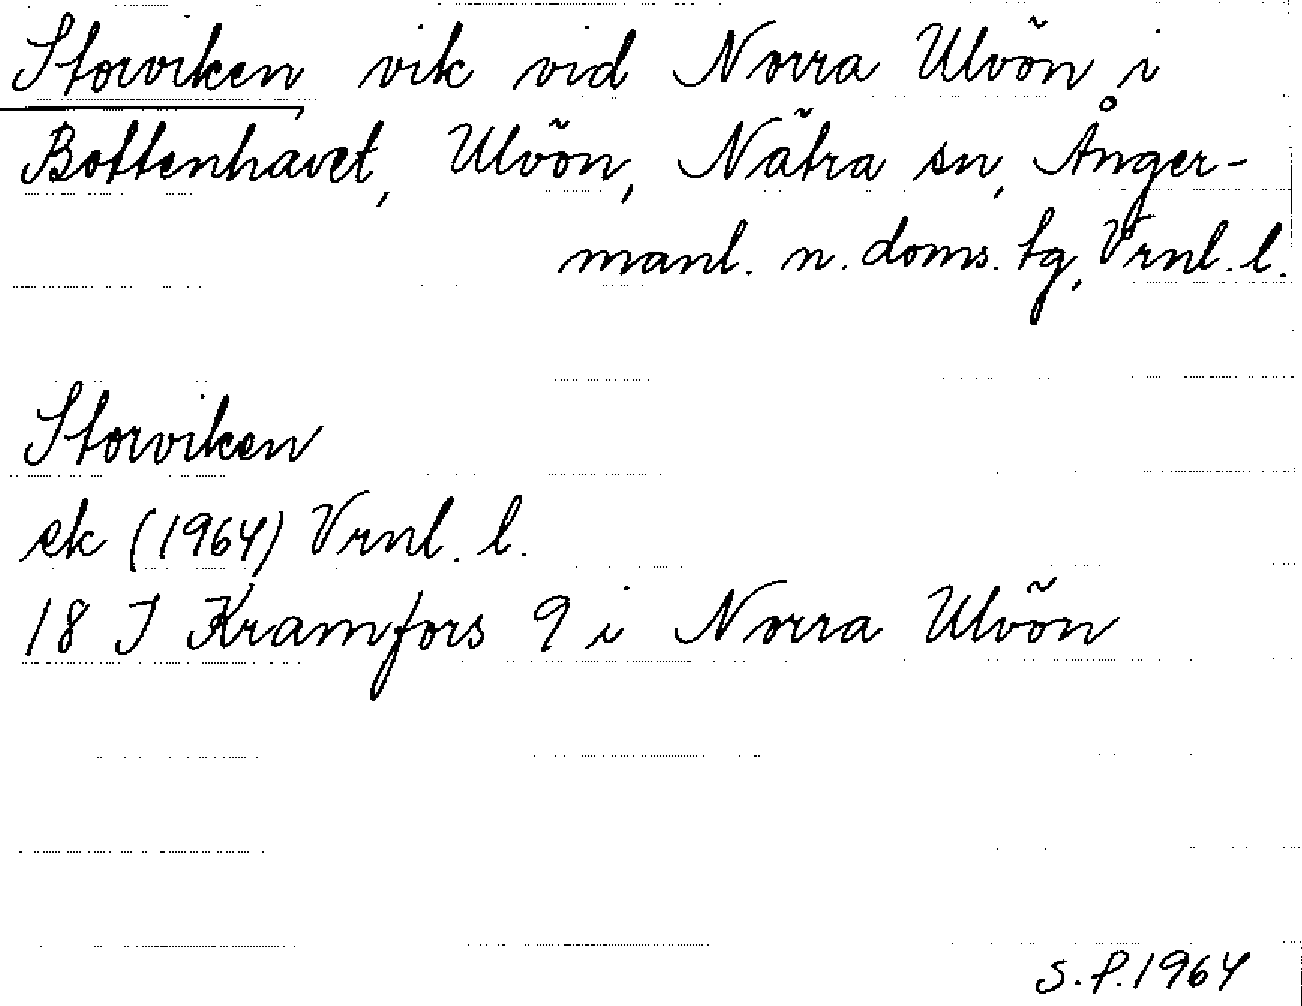 Storviken, vik vid Norra Ulvön i
Bottenhavet, Ulvön, Nätra sn, Ånger-
manl. n. doms. tg, Vrnl. l.
Storviken
ek (1964) Vrnl. l.
18 I Kramfors 9 i Norra Ulvön
S.P. 1964